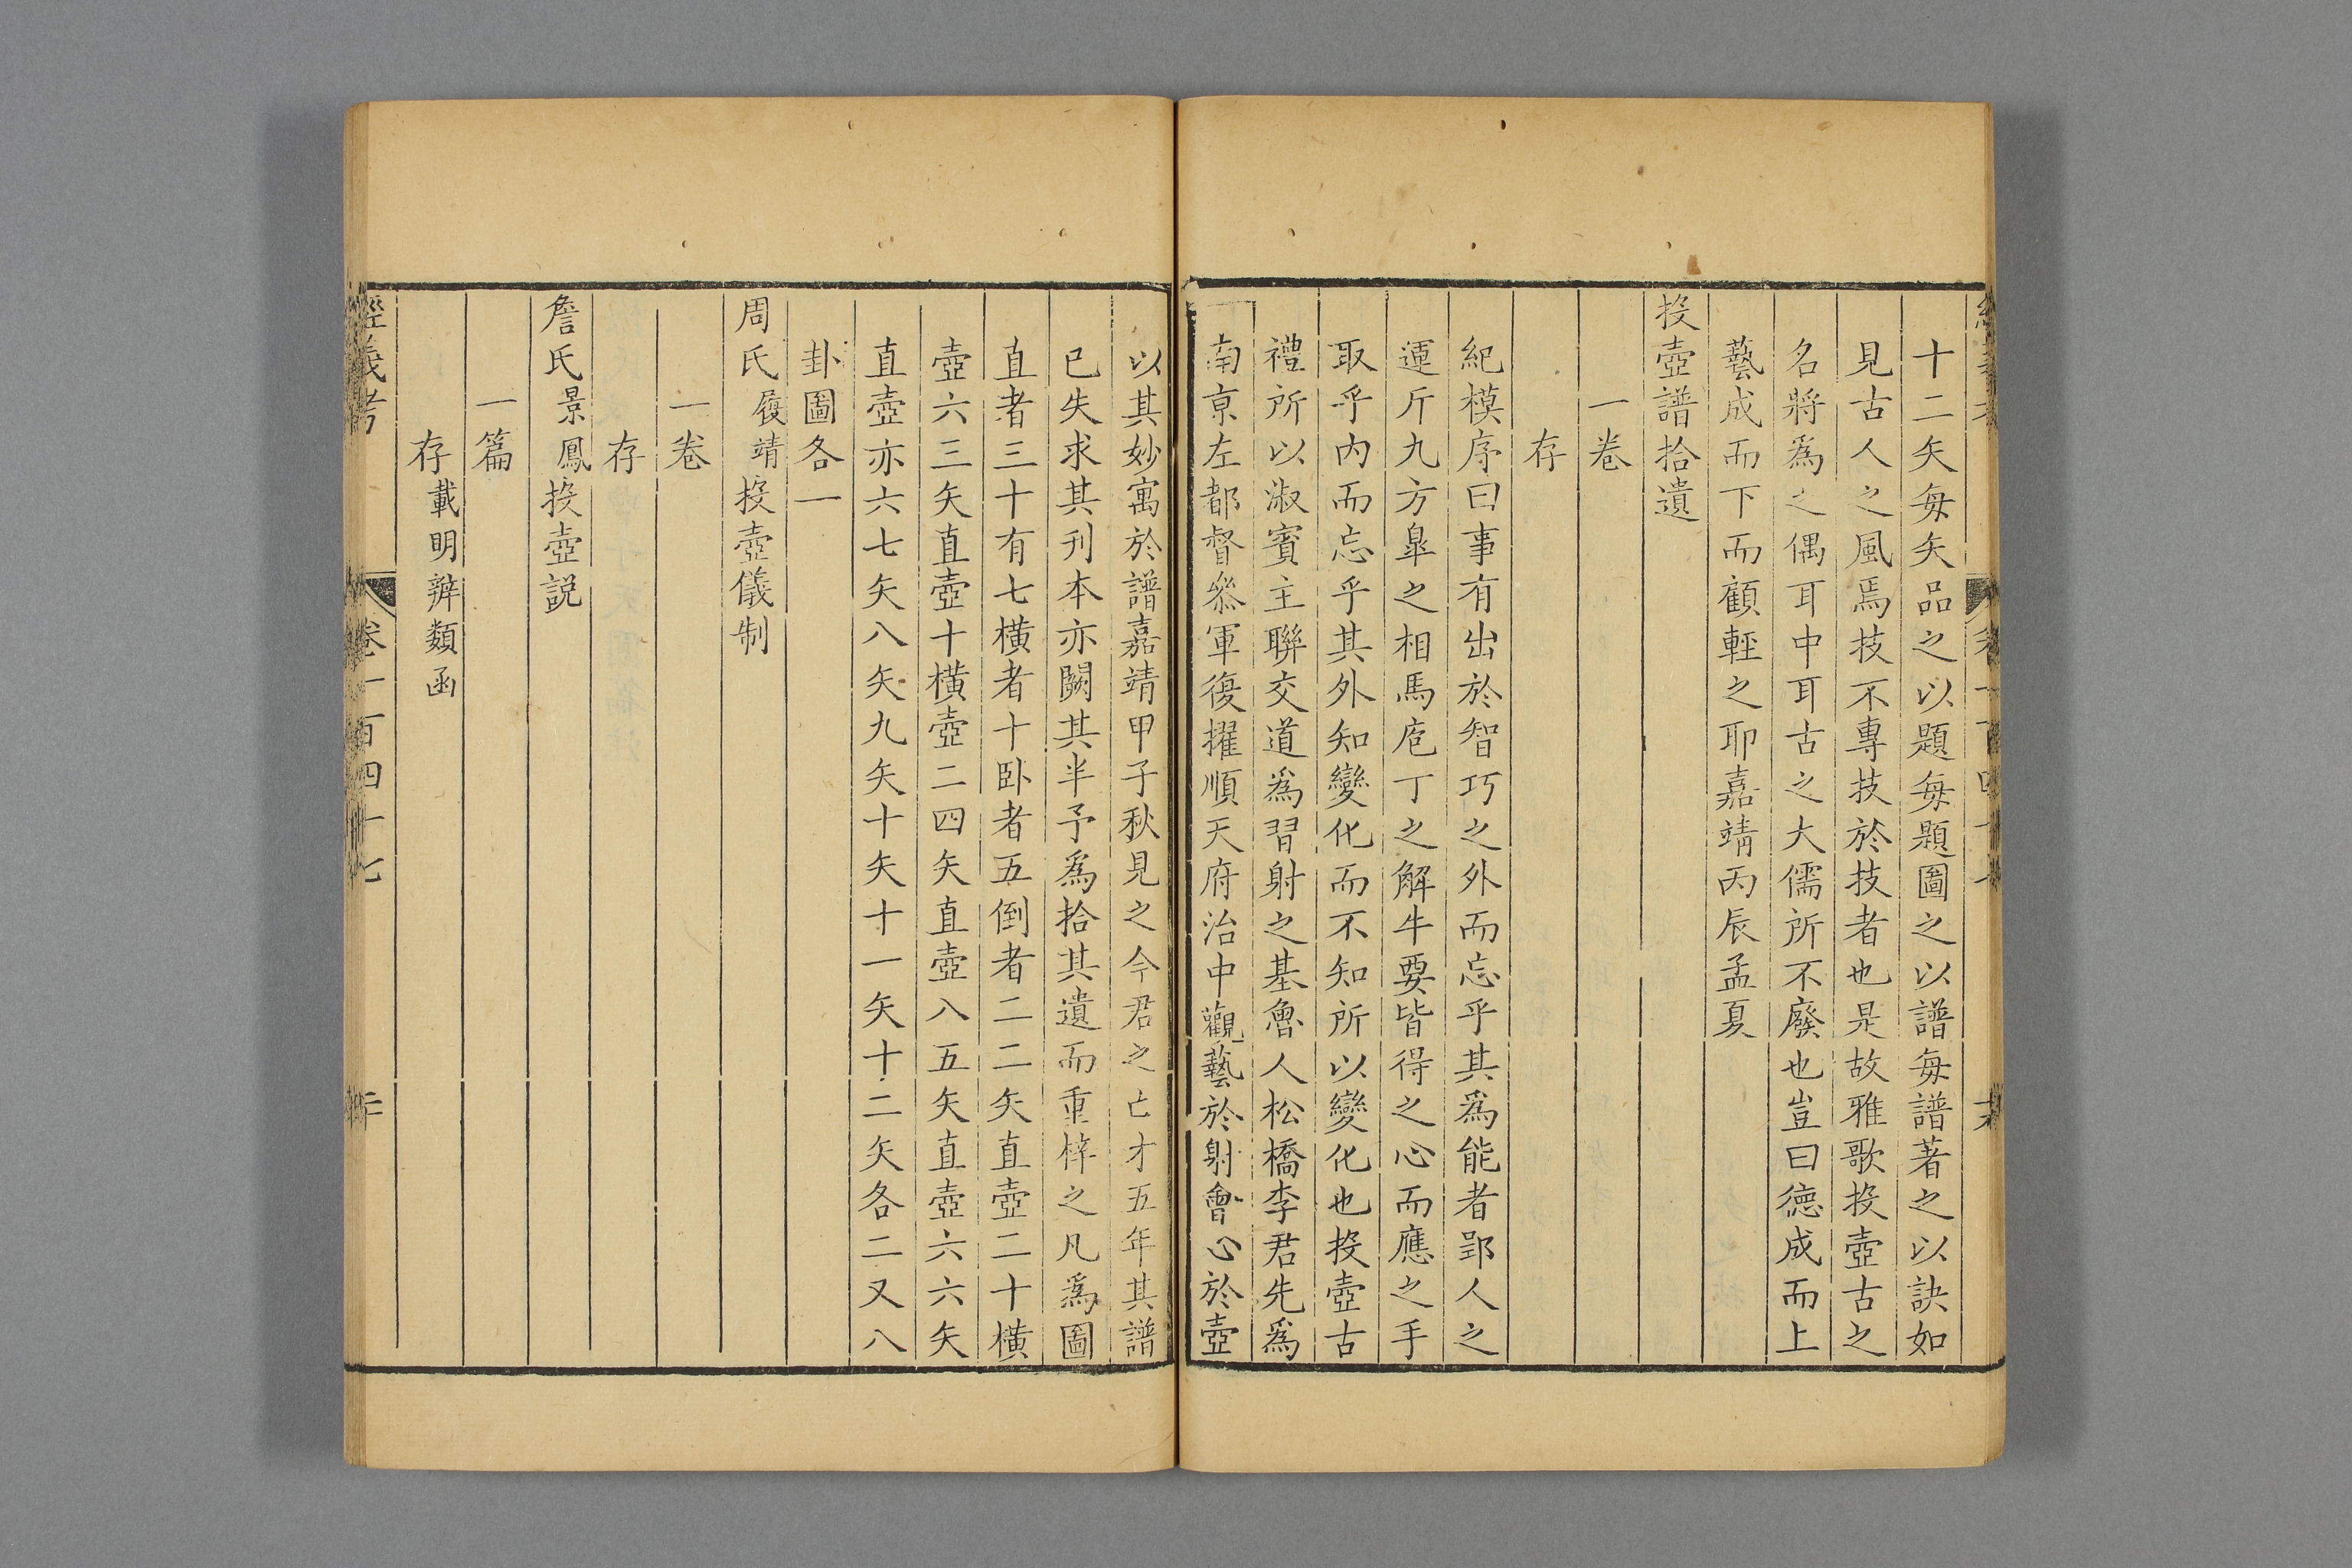 十二矢每矢品之以題每題圖之以譜每譜著之以訣如
見古人之風焉技不專技於技者也是故雅歌投壺古之
名將爲之偶耳中耳古之大儒所不廢也豈曰德成而上
藝成而下而顧輕之耶嘉靖丙辰孟夏
投壺譜拾遺
一卷
存
紀模序曰事有出於智巧之外而忘乎其爲能者郢人之
運斤九方臯之相馬庖丁之解牛要皆得之心而應之手
取乎内而忘乎其外知變化而不知所以變化也投壺古
禮所以淑賓主聯交道爲習射之基魯人松橋李君先爲
南京左都督叅軍復擢順天府治中觀藝於射會心於壺
以其妙寓於譜嘉靖甲子秋見之今君之亡才五年其譜
已失求其刊本亦闕其半予爲拾其遺而重梓之凡爲圖
直者三十有七橫者十卧者五倒者二二矢直壺二十橫
壺六三矢直壺十橫壺二四矢直壺八五矢直壺六六矢
直壺亦六七矢八矢九矢十矢十一矢十二矢各二又八
卦圖各一
周氏履靖投壺儀制
一卷
存
詹氏景鳳投壺説
一篇
存載明辨類函
經義考 卷一百四十七